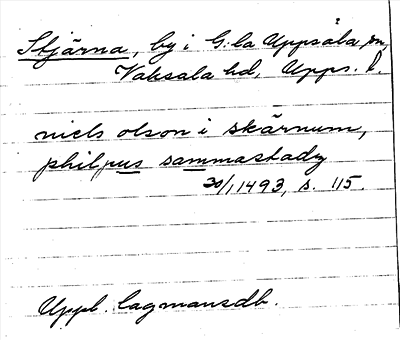 Stjärna, by i G:la Uppsala sn,
Vaksala hd, Upps. l.
niels olson i skärnum,
philpus sammastadz
30/1 1493, s. 115.
Uppl. lagmansdb.